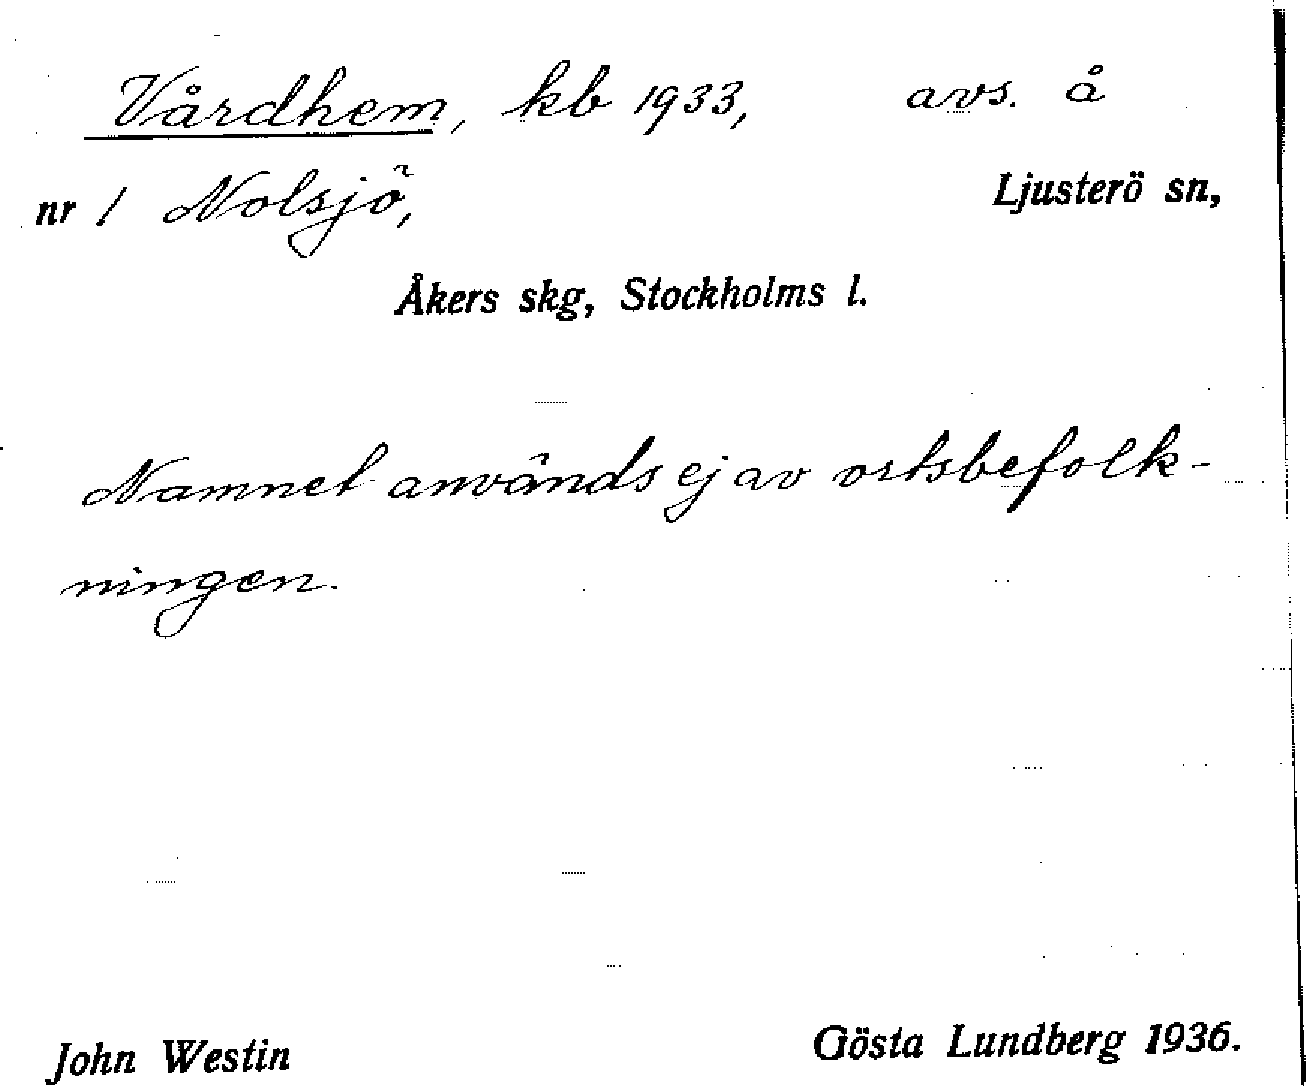 Vårdhem, kb 1933, avs. å
nr 1 Nolsjö, Ljusterö sn,
Åkers skg, Stockholms l.
Namnet används ej av ortsbefolk-
ningen.
John Westin Gösta Lundberg 1936.